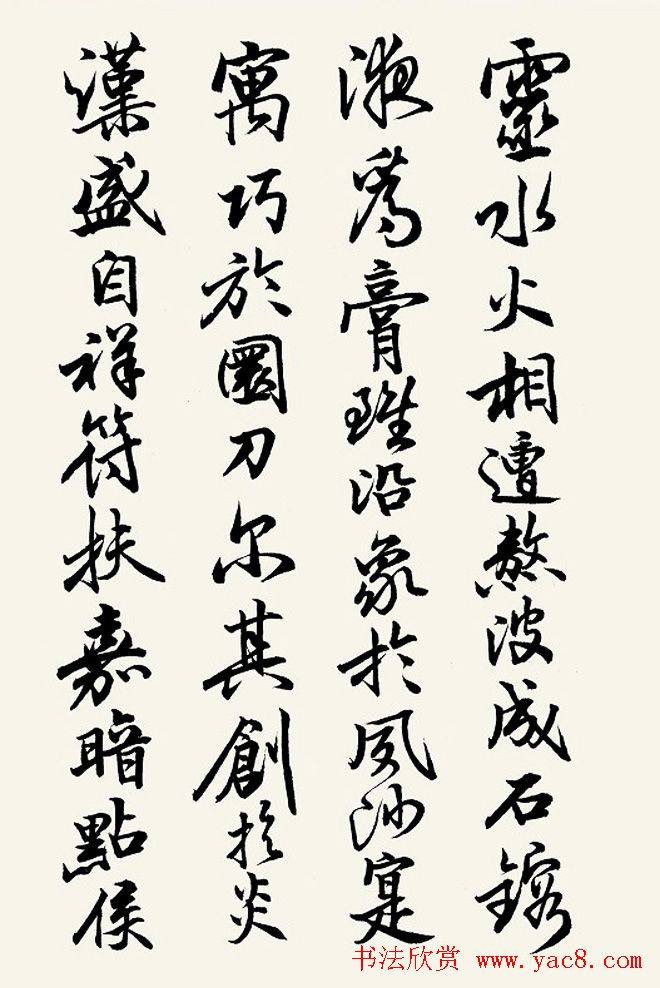 靈水火相遭熬波成石鎔
液爲膏雖沿象於風沙寔
寓巧於圜刀尔其創於炎
漢盛自祥符扶嘉暗點侯
书法欣赏 www.yac8.com